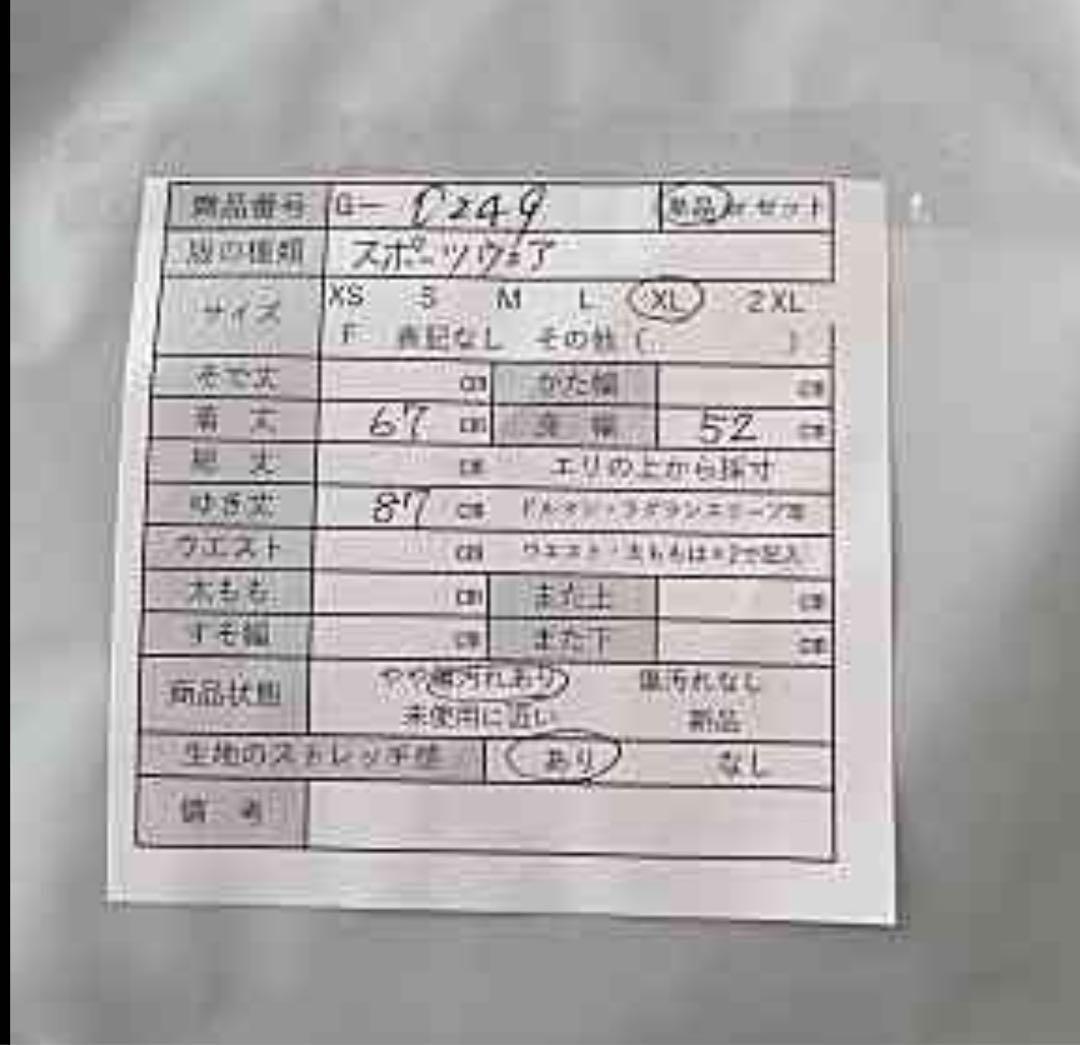 商品番号 G- C249 単品 or セット
服の種類 スポーツウェア
サイズ XS S M L XL 2XL
F 表記なし その他 ( )
そで丈 cm かた幅 cm
着丈 67 cm 身幅 52 cm
総丈 cm エリの上から採寸
ゆき丈 87 cm ドルマン・ラグランスリーブ等
ウエスト cm ウエスト・太ももは×2で記入
太もも cm また上 cm
すそ幅 cm また下 cm
商品状態 やや傷汚れあり 傷汚れなし
未使用に近い 新品
生地のストレッチ性 あり なし
備考